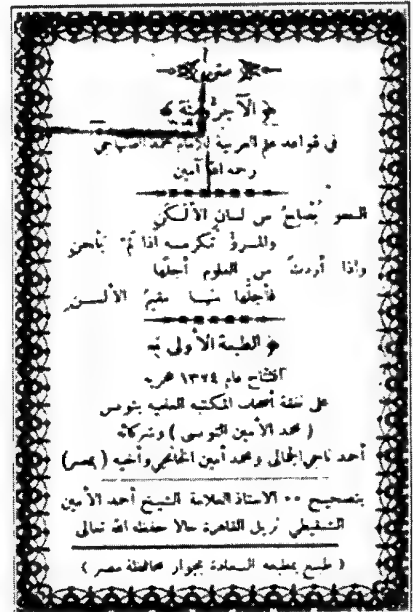 متن
﴿ الآجرومية ﴾
في قواعد علم العربية للإمام محمد الصنهاجي
رحمه الله آمين
النحو يُصْلح من لسان الألكن
والمرءُ تُكرمه اذا لمْ يلحن
واذا أردتَ من العلوم أجلَّها
فأجلُّها منها مقيمُ الألسن
﴿ الطبعة الأولى ﴾
افتتاح عام ١٣٢٤ هجرية
على نفقة أصحاب المكتبة العلمية بتونس
( محمد الأمين التونسي ) وشركائه
أحمد ناجي الجمالي ومحمد أمين الخانجي وأخيه ( بمصر )
بتصحيح ٠٠ الاستاذ العلامة الشيخ أحمد الأمين
الشنقيطي نزيل القاهرة حالا حفظه الله تعالى
( طبع بمطبعة السعادة بجوار محافظة مصر )